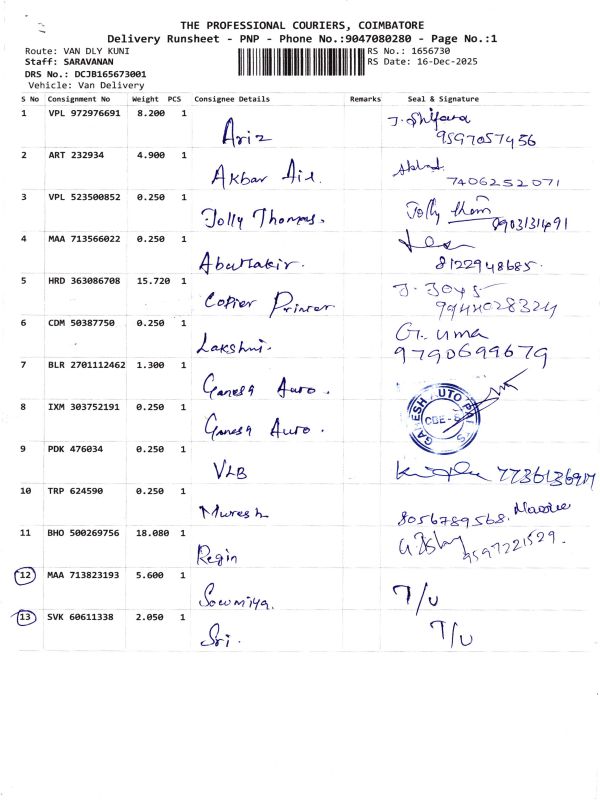 THE PROFESSIONAL COURIERS, COIMBATORE
Delivery Runsheet - PNP - Phone No.:9047080280 - Page No.:1
Route: VAN DLY KUNI RS No.: 1656730
Staff: SARAVANAN RS Date: 16-Dec-2025
DRS No.: DCJB165673001
Vehicle: Van Delivery
S No Consignment No Weight PCS Consignee Details Remarks Seal & Signature
1 VPL 972976691 8.200 1 Ariz J. Shifana
9597057456
2 ART 232934 4.900 1 Akbar Ali.
7406252071
3 VPL 523500852 0.250 1 Jolly Thomas. Jolly Thom
4 MAA 713566022 0.250 1
8122948685.
5 HRD 363086708 15.720 1 Copier Printer J. Joys
9944028324
6 CDM 50387750 0.250 1 Lakshmi. G. uma
9790699679
7 BLR 2701112462 1.300 1 Ganesh Auto.
8 IXM 303752191 0.250 1 Ganesh Auto. GANESH AUTO CBE-
9 PDK 476034 0.250 1 VLB
10 TRP 624590 0.250 1 Muresh
8056789568.
11 BHO 500269756 18.080 1 Regin
9597221529.
12 MAA 713823193 5.600 1 Sowmiya. T/U
13 SVK 60611338 2.050 1 Sri. T/U